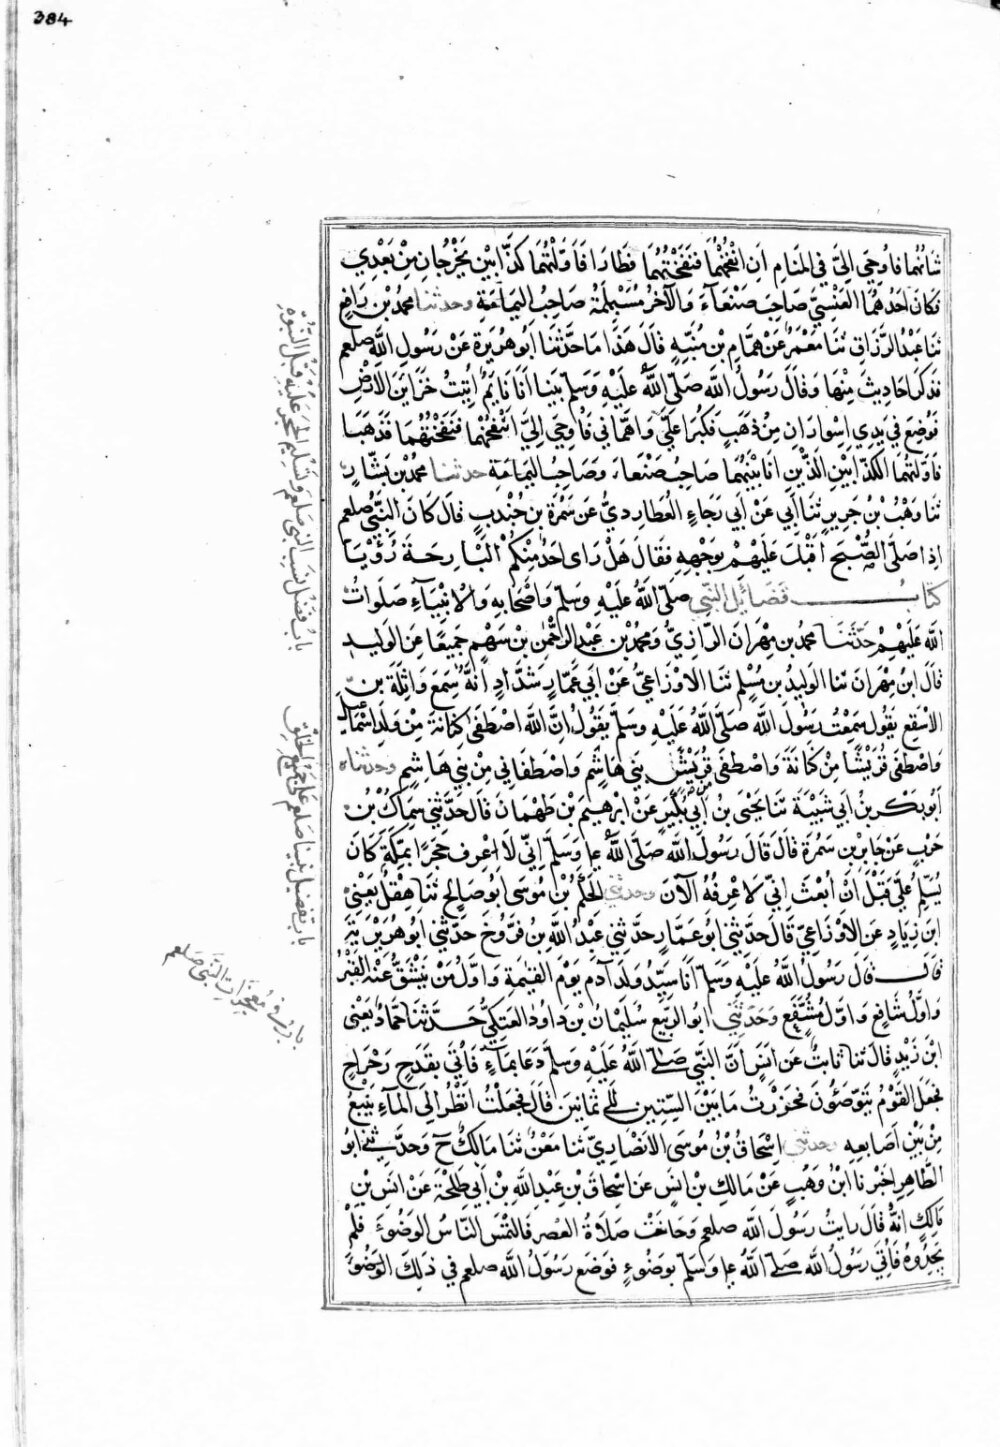 384
شانهما فاوحي اليّ في المنام ان انفخهما فنفختهما فطارا فاولتهما كذّابين يخرجان من بعدي
فكان احدهما العنسي صاحب صنعاء والآخر مسيلمة صاحب اليمامة وحدثنا محمد بن رافع
ثنا عبد الرزاق ثنا معمر عن همام بن منبه قال هذا ما حدثنا ابو هريرة عن رسول الله صلعم
فذكر احاديث منها وقال رسول الله صلى الله عليه وسلم بينا انا نايم اُتيت خزاين الارض
فوضع في يدي اسواران من ذهب فكبرا عليّ واهمّاني فاوحي اليّ انفخهما فنفختهما فذهبا
فاولتهما الكذابين الذين انا بينهما صاحب صنعاء وصاحب اليمامة حدثنا محمد بن بشار
ثنا وهب بن جرير ثنا ابي عن ابي رجاء العطاردي عن سمرة بن جندب قال كان النبي صلعم
اذا صلى الصبح اقبل عليهم بوجهه فقال هل راى احد منكم البارحة رؤيا
كتاب فضائل النبي صلى الله عليه وسلم واصحابه والانبياء صلوات
الله عليهم حدثنا محمد بن مهران الرازي ومحمد بن عبد الرحمن بن سهم جميعا عن الوليد
قال ابن مهران ثنا الوليد بن مسلم ثنا الاوزاعي عن ابي عمار شداد انه سمع واثلة بن
الاسقع يقول سمعت رسول الله صلى الله عليه وسلم يقول ان الله اصطفى كنانة من ولد اسماعيل
واصطفى قريشا من كنانة واصطفى قريش بني هاشم واصطفاني من بني هاشم وحدثناه
ابو بكر بن ابي شيبة ثنا يحيى بن ابي بكير عن ابرهيم بن طهمان قال حدثني سماك بن
حرب عن جابر بن سمرة قال قال رسول الله صلى الله ع‍ا وسلم اني لا اعرف حجرا بمكة كان
يسلم عليّ قبل ان ابعث اني لا عرفه الآن وحدثني الحكم بن موسى ابو صالح ثنا هقل يعني
ابن زياد عن الاوزاعي قال حدثني ابو عمار حدثني عبد الله بن فروخ حدثني ابو هريرة
قال قال رسول الله عليه وسلم انا سيد ولد آدم يوم القيمة واول من ينشق عنه القبر
واول شافع واول مشفع وحدثني ابو الربيع سليمان بن داود العتكي حدثنا حماد يعني
ابن زيد قال ثنا ثابت عن انس ان النبي صلى الله عليه وسلم دعا بماء فاتي بقدح رحراح
فجعل القوم يتوضئون فحزرت ما بين الستين الى ثمانين قال فجعلت انظر الى الماء ينبع
من بين اصابعه وحدثني اسحاق بن موسى الانصاري ثنا معن ثنا مالك ح وحدثني ابو
الطاهر اخبرنا ابن وهب عن مالك بن انس عن اسحاق بن عبد الله بن ابي طلحة عن انس بن
مالك انه قال رايت رسول الله صلعم وحانت صلاة العصر فالتمس الناس الوضوء فلم
يجدوه فاتي رسول الله صلى الله ع‍ا وسلم بوضوء فوضع رسول الله صلعم في ذلك الوضوء
باب فضل نسب النبي صلعم وتسليم الحجر عليه قبل النبوة
باب تفضيل نبينا صلعم على جميع الخلق
باب في معجزات النبي صلعم